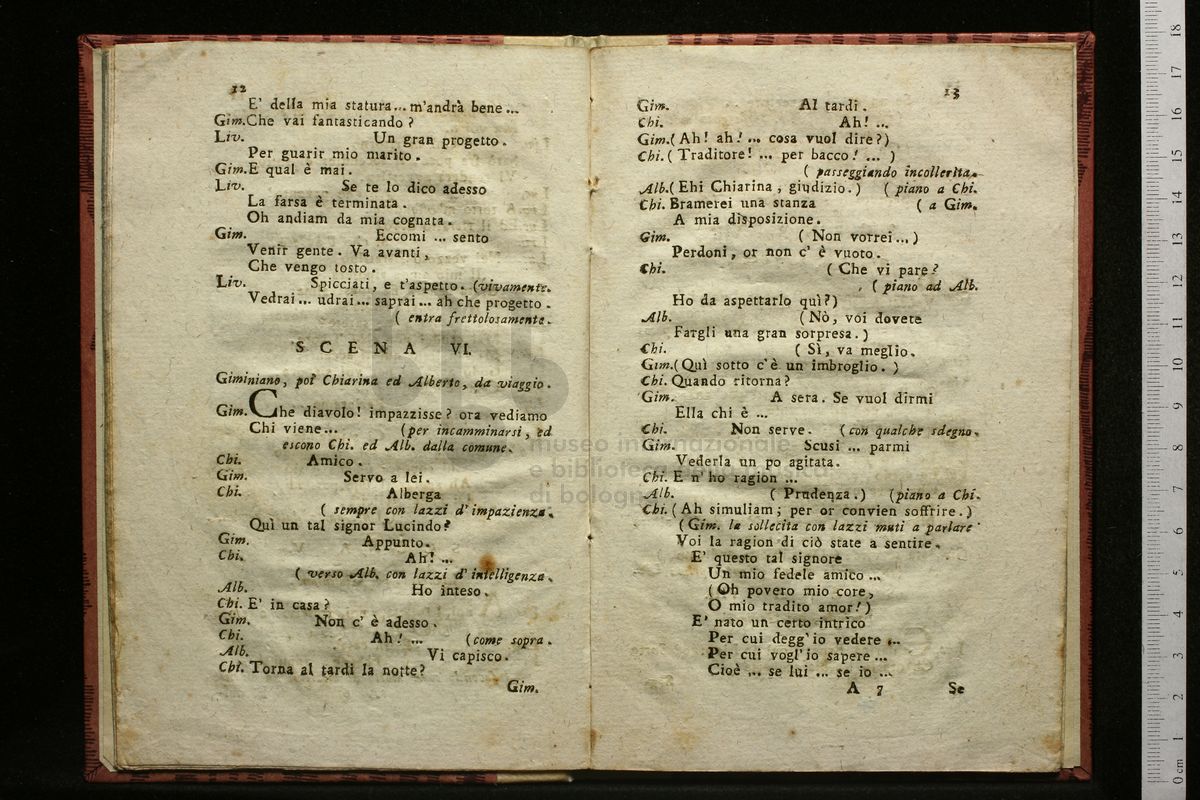 12
E' della mia statura... m'andrà bene...
Gim. Che vai fantasticando?
Liv. Un gran progetto.
Per guarir mio marito.
Gim. E qual è mai.
Liv. Se te lo dico adesso
La farsa è terminata.
Oh andiam da mia cognata.
Gim. Eccomi ... sento
Venir gente. Va avanti,
Che vengo tosto.
Liv. Spicciati, e t'aspetto. (vivamente.
Vedrai... udrai... saprai... ah che progetto.
( entra frettolosamente.
SCENA VI.
Giminiano, poi Chiarina ed Alberto, da viaggio.
Gim. Che diavolo! impazzisse? ora vediamo
Chi viene... (per incamminarsi, ed
escono Chi. ed Alb. dalla comune.
Chi. Amico.
Gim. Servo a lei.
Chi. Alberga
( sempre con lazzi d'impazienza.
Quì un tal signor Lucindo?
Gim. Appunto.
Chi. Ah! ...
( verso Alb. con lazzi d'intelligenza.
Alb. Ho inteso.
Chi. E' in casa?
Gim. Non c' è adesso.
Chi. Ah! ... (come sopra.
Alb. Vi capisco.
Chi. Torna al tardi la notte?
Gim.
13
Gim. Al tardi.
Chi. Ah! ...
Gim. (Ah! ah! ... cosa vuol dire?)
Chi. (Traditore! ... per bacco! ... )
( passeggiando incollerita.
Alb. (Ehi Chiarina, giudizio.) (piano a Chi.
Chi. Bramerei una stanza ( a Gim.
A mia disposizione.
Gim. (Non vorrei...)
Perdoni, or non c' è vuoto.
Chi. (Che vi pare?
( piano ad Alb.
Ho da aspettarlo quì?)
Alb. (Nò, voi dovete
Fargli una gran sorpresa.)
Chi. (Sì, va meglio.
Gim. (Quì sotto c'è un imbroglio.)
Chi. Quando ritorna?
Gim. A sera. Se vuol dirmi
Ella chi è ...
Chi. Non serve. (con qualche sdegno.
Gim. Scusi ... parmi
Vederla un po agitata.
Chi. E n' ho ragion ...
Alb. (Prudenza.) (piano a Chi.
Chi. (Ah simuliam; per or convien soffrire.)
(Gim. la sollecita con lazzi muti a parlare
Voi la ragion di ciò state a sentire.
E' questo tal signore
Un mio fedele amico ...
(Oh povero mio core,
O mio tradito amor!)
E' nato un certo intrico
Per cui degg'io vedere ...
Per cui vogl'io sapere ...
Cioè ... se lui ... se io ...
A 7 Se
museo internazionale
e biblioteca della musica
di bologna
0 cm 1 2 3 4 5 6 7 8 9 10 11 12 13 14 15 16 17 18